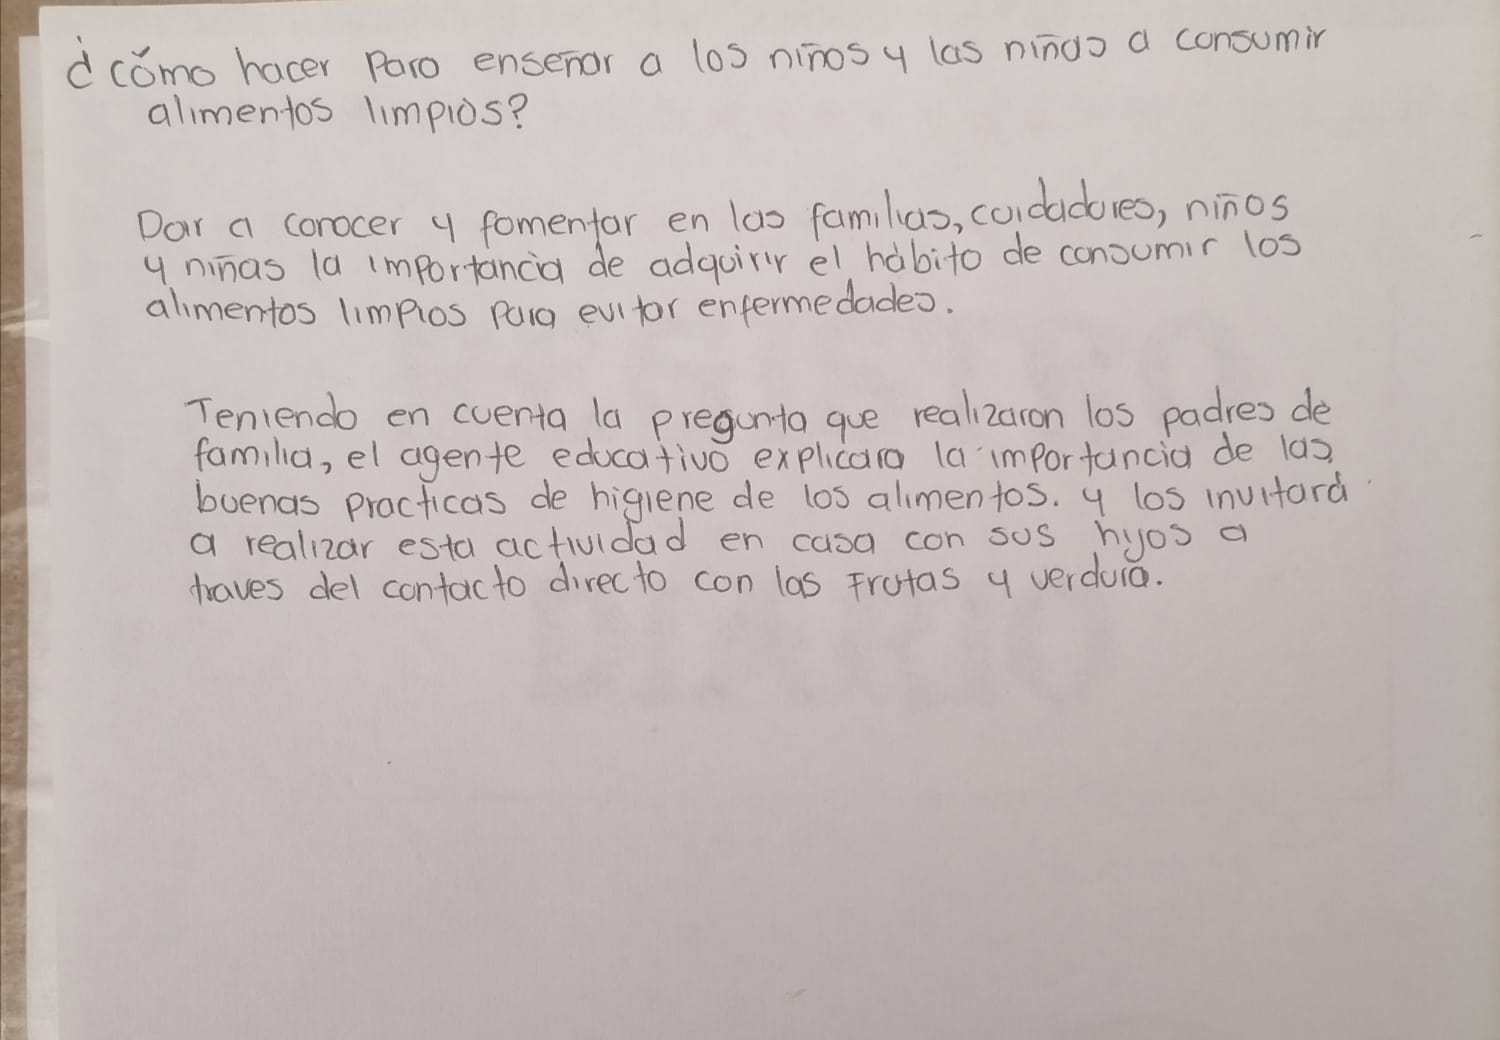 ¿cómo hacer para enseñar a los niños y las niñas a consumir
alimentos limpios?
Dar a conocer y fomentar en las familias, cuidadores, niños
y niñas la importancia de adquirir el hábito de consumir los
alimentos limpios para evitar enfermedades.
Teniendo en cuenta la pregunta que realizaron los padres de
familia, el agente educativo explicara la importancia de las
buenas practicas de higiene de los alimentos. y los invitará
a realizar esta actividad en casa con sus hijos a
traves del contacto directo con las Frutas y verdura.